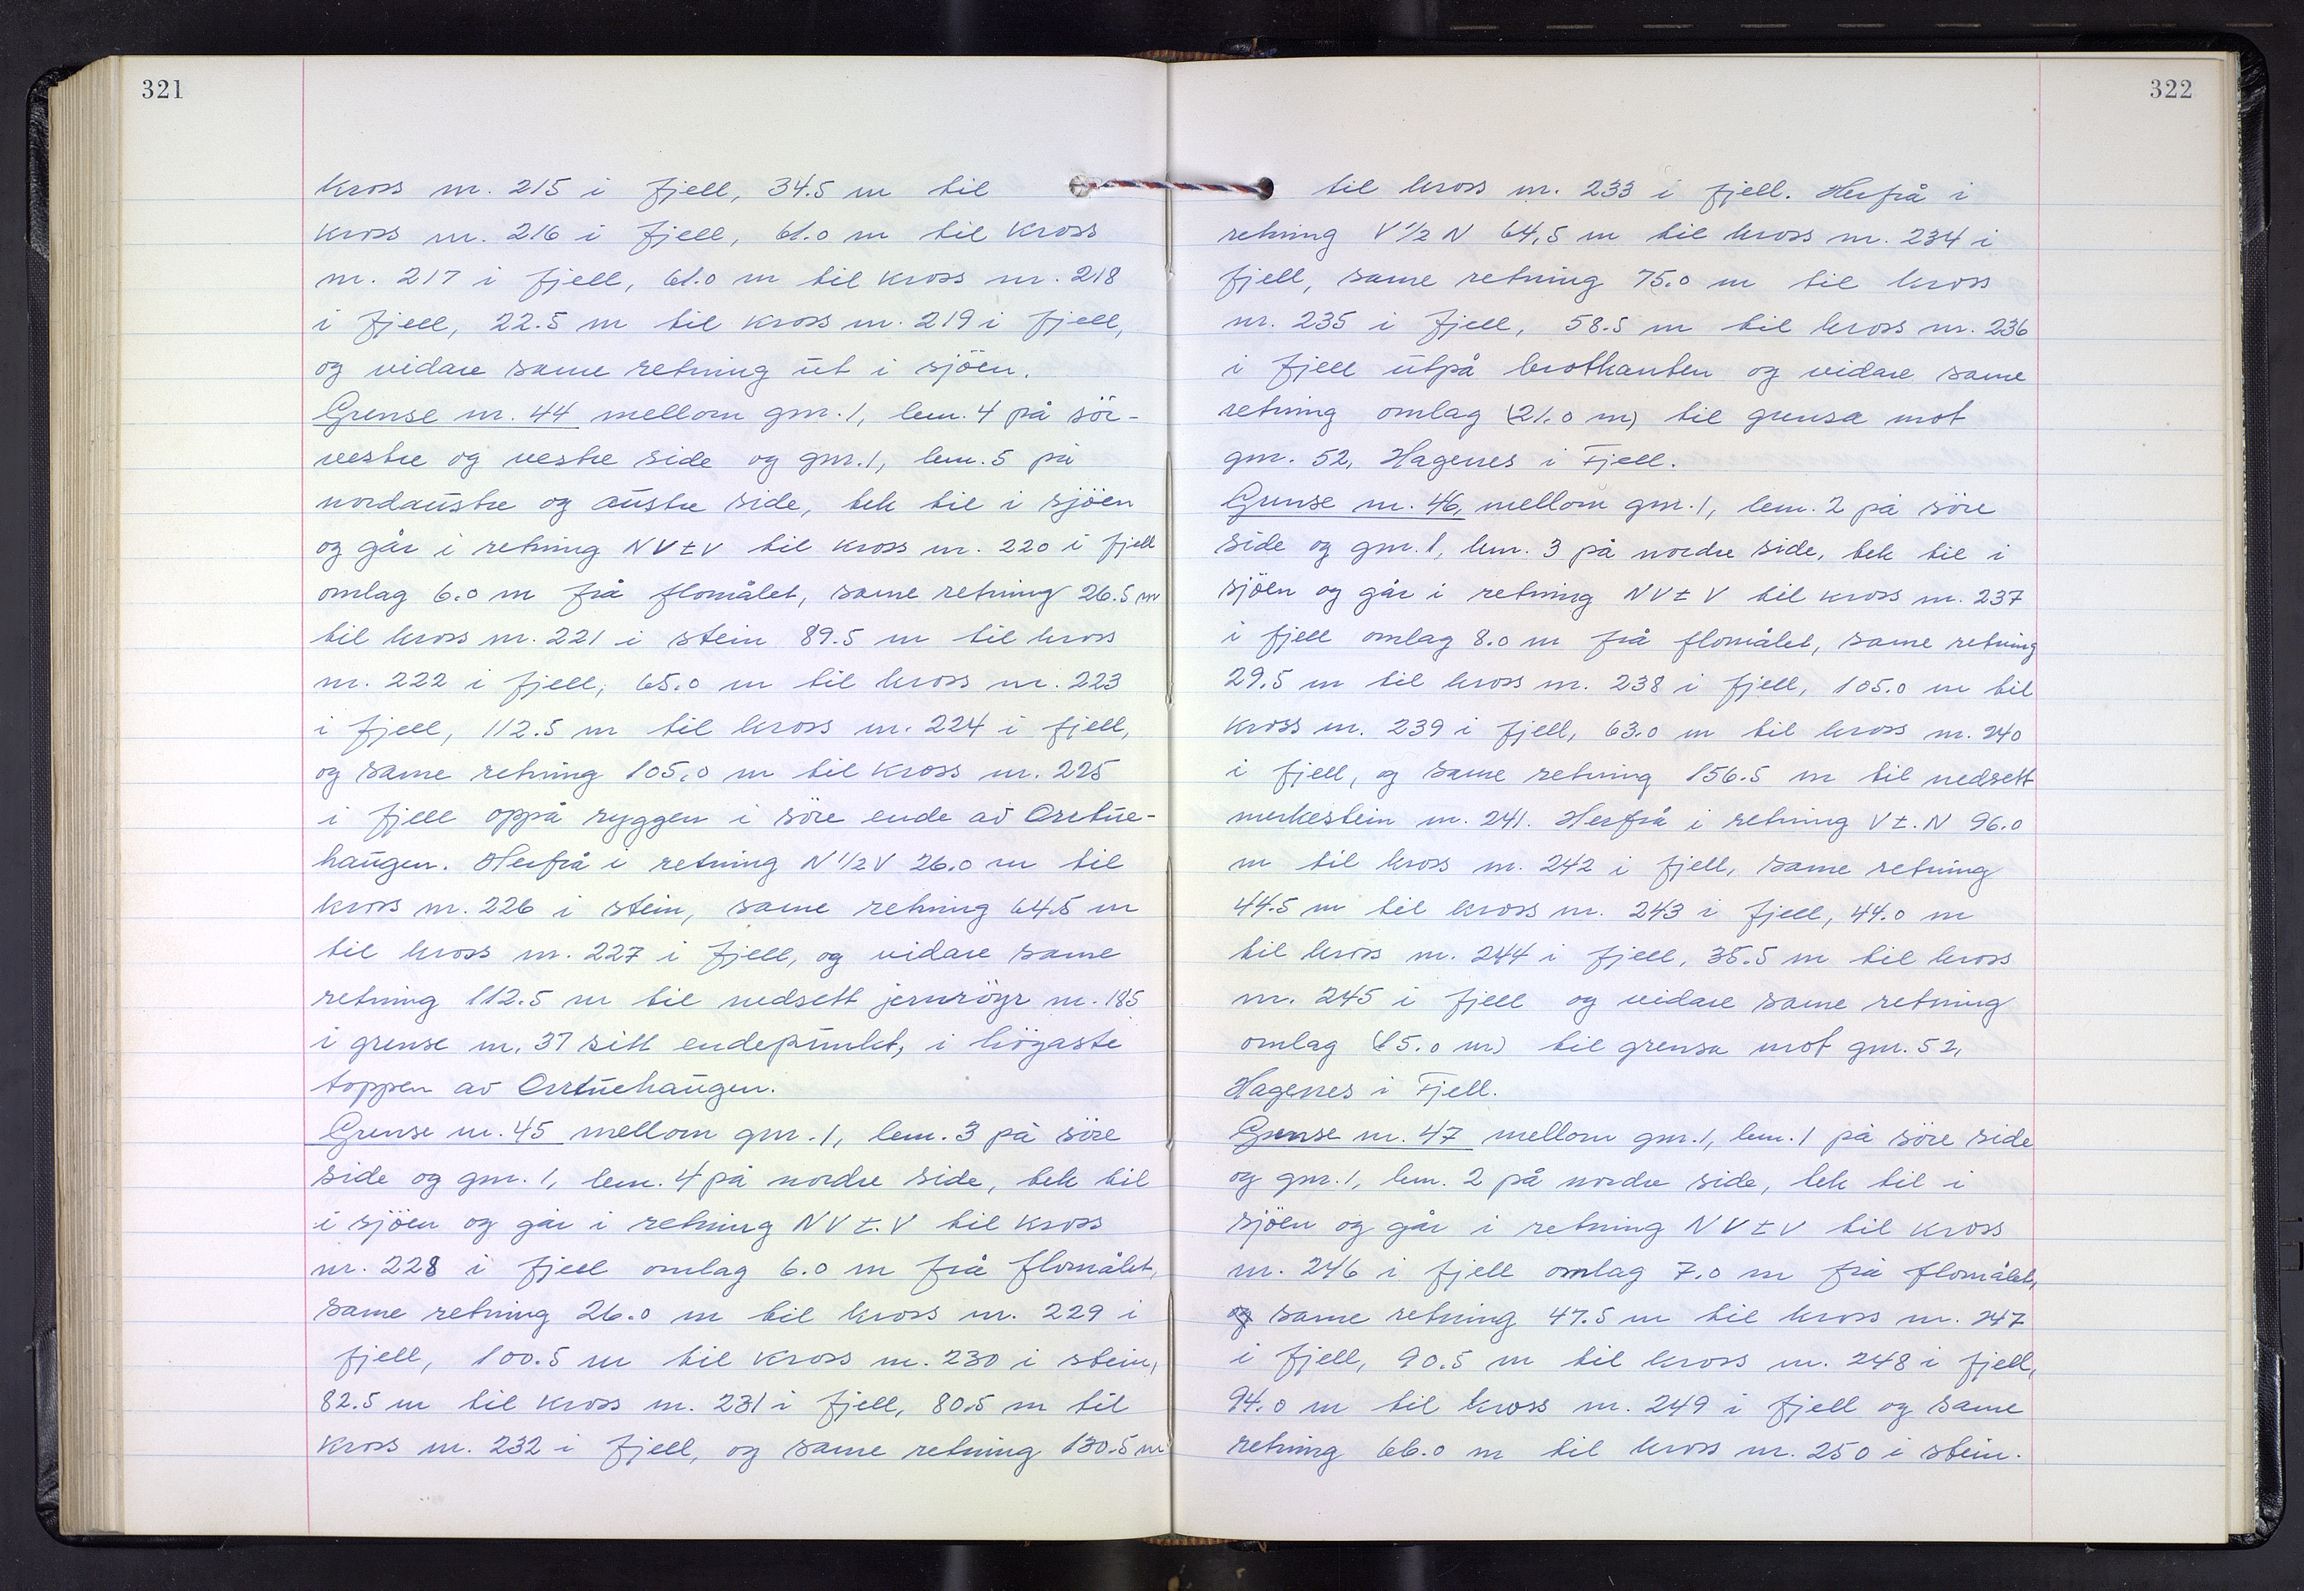 321
kross nr. 215 i fjell, 34.5 m til
kross nr. 216 i fjell, 61.0 m til kross
nr. 217 i fjell, 61.0 m til kross nr. 218
i fjell, 22.5 m til kross nr. 219 i fjell,
og vidare same retning ut i sjöen.
Grense nr. 44 mellom gnr. 1, lem. 4 på sör-
vestre og vestre side og gnr. 1, lem. 5 på
nordaustre og austre side, tek til i sjöen
og går i retning NVtV til kross nr. 220 i fjell
omlag 6.0 m frå flomålet, same retning 26.5 m
til kross nr. 221 i stein 89.5 m til kross
nr. 222 i fjell, 65.0 m til kross nr. 223
i fjell, 112.5 m til kross nr. 224 i fjell,
og same retning 105.0 m til kross nr. 225
i fjell oppå ryggen i söre ende av Orrtue-
haugen. Herfrå i retning N 1/2 V 26.0 m til
kross nr. 226 i stein, same retning 64.5 m
til kross nr. 227 i fjell, og vidare same
retning 112.5 m til nedsett jernröyr nr. 185
i grense nr. 37 sitt endepunkt, i högaste
toppen av Orrtuehaugen.
Grense nr. 45 mellom gnr. 1, lem. 3 på söre
side og gnr. 1, lem. 4 på nordre side, tek til
i sjöen og går i retning NVt.V til kross
nr. 228 i fjell omlag 6.0 m frå flomålet,
same retning 26.0 m til kross nr. 229 i
fjell, 100.5 m til kross nr. 230 i stein,
82.5 m til kross nr. 231 i fjell, 80.5 m til
kross nr. 232 i fjell, og same retning 130.5 m
322
til kross nr. 233 i fjell. Herfrå i
retning V 1/2 N 64,5 m til kross nr. 234 i
fjell, same retning 75.0 m til kross
nr. 235 i fjell, 58.5 m til kross nr. 236
i fjell utpå brotkanten og vidare same
retning omlag (21.0 m) til grensa mot
gnr. 52, Hagenes i Fjell.
Grense nr. 46, mellom gnr. 1, lem. 2 på söre
side og gnr. 1, lem. 3 på nordre side, tek til i
sjöen og går i retning NVtV til kross nr. 237
i fjell omlag 8.0 m frå flomålet, same retning
29.5 m til kross nr. 238 i fjell, 105.0 m til
kross nr. 239 i fjell, 63.0 m til kross nr. 240
i fjell, og same retning 156.5 m til nedsett
merkestein nr. 241. Herfrå i retning Vt.N 96.0
m til kross nr. 242 i fjell, same retning
44.5 m til kross nr. 243 i fjell, 44.0 m
til kross nr. 244 i fjell, 35.5 m til kross
nr. 245 i fjell og vidare same retning
omlag (15.0 m) til grensa mot gnr. 52,
Hagenes i Fjell.
Grense nr. 47 mellom gnr. 1, lem. 1 på söre side
og gnr. 1, lem. 2 på nordre side, tek til i
sjöen og går i retning NVtV til kross
nr. 246 i fjell omlag 7.0 m frå flomålet,
og same retning 47.5 m til kross nr. 247
i fjell, 90.5 m til kross nr. 248 i fjell,
94.0 m til kross nr. 249 i fjell og same
retning 66.0 m til kross nr. 250 i stein.